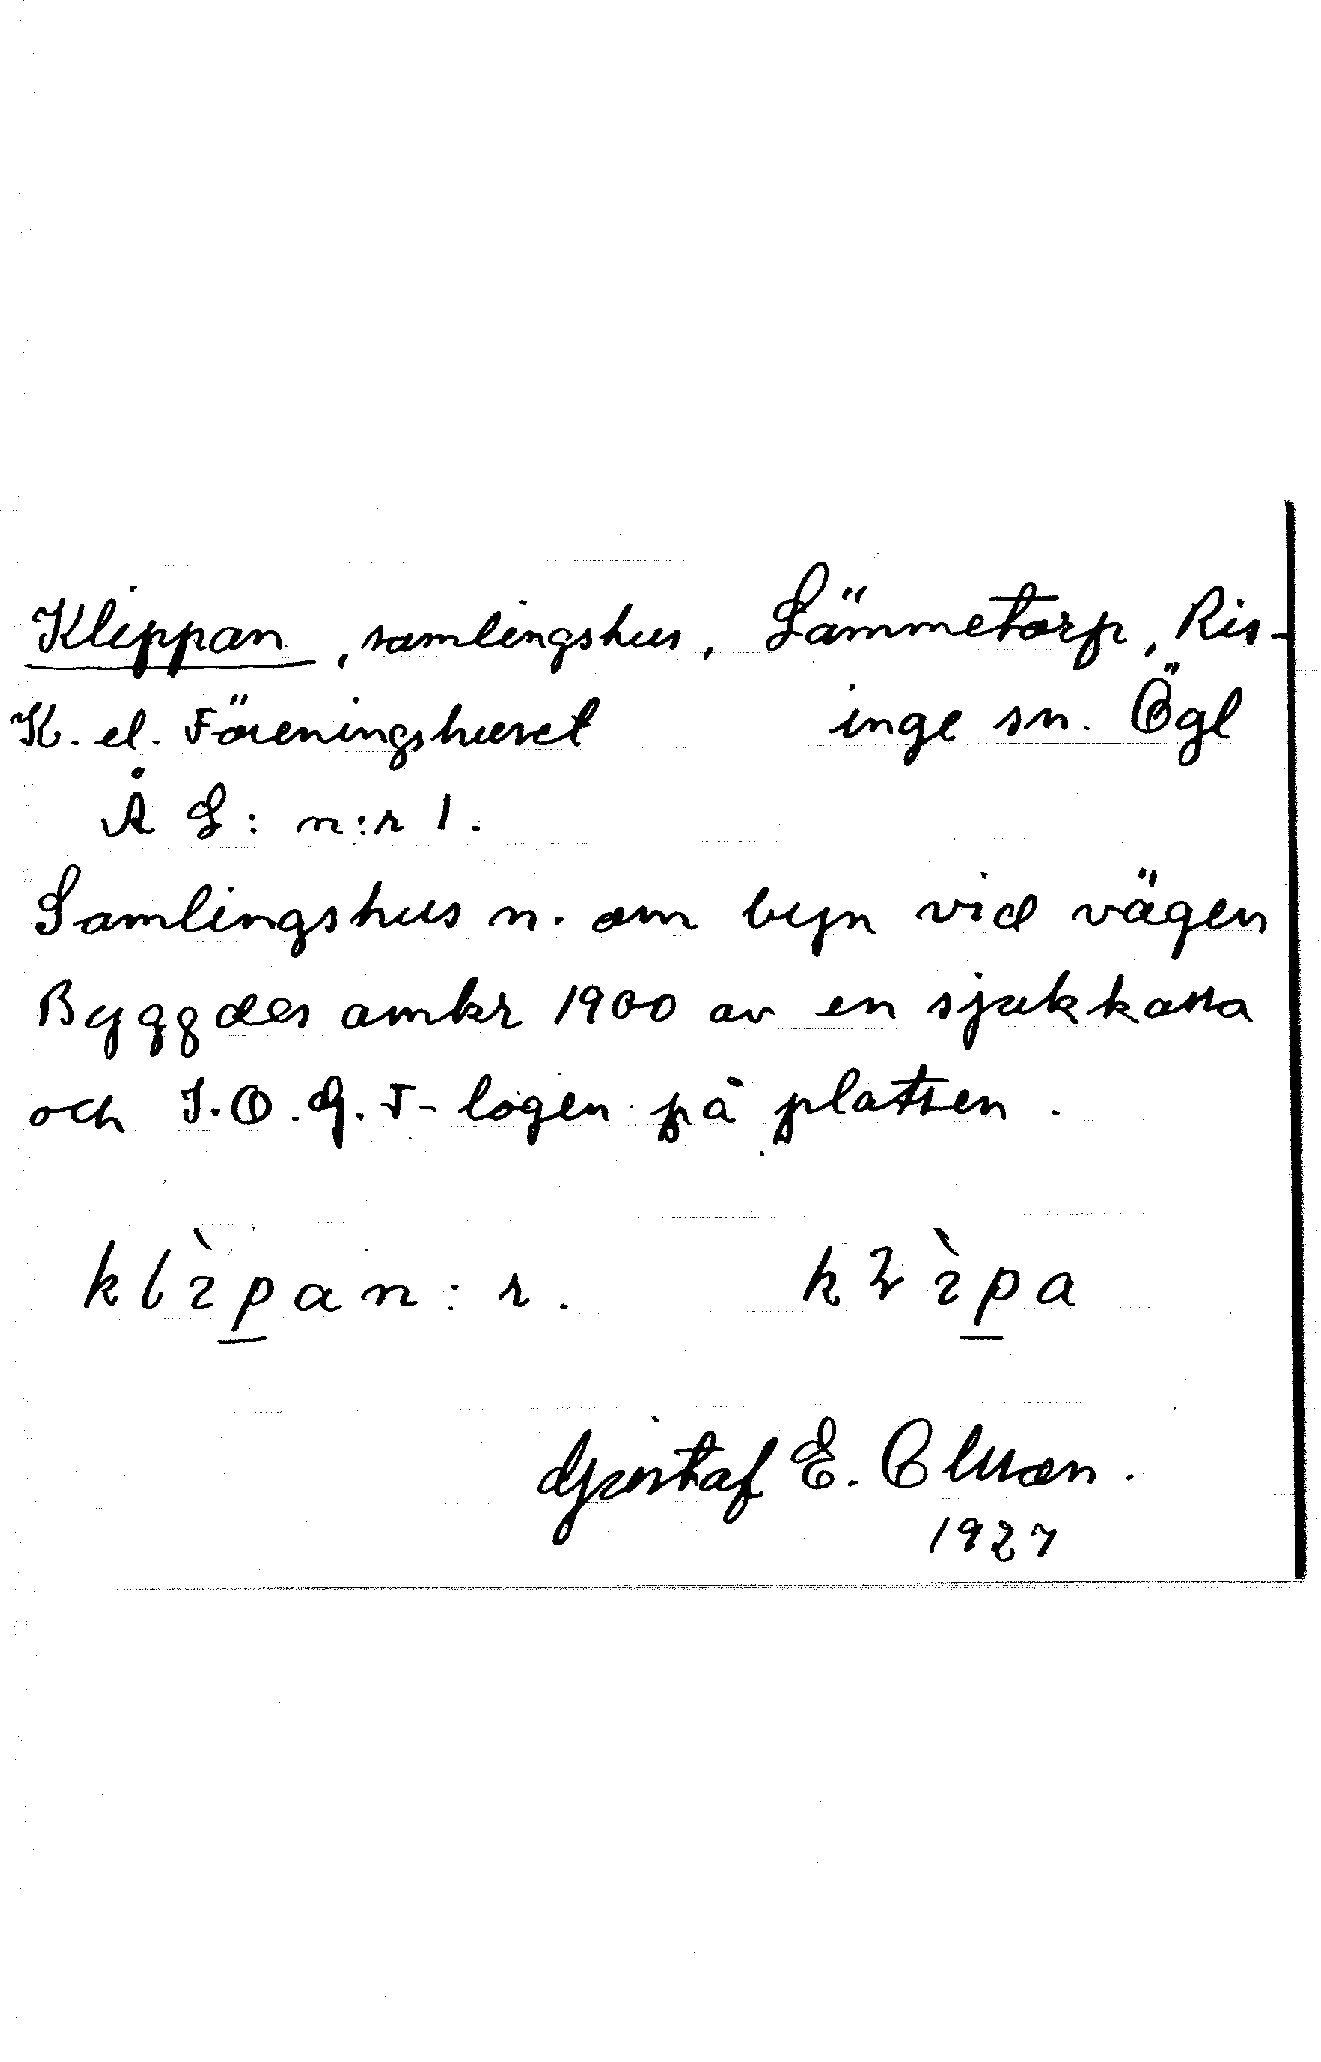 Klippan, samlingshus, Sämmetorp, Ris-
K. el. Föreningshuset inge sn. Ögl
Å S: n:r 1.
Samlingshus n. om byn vid vägen
Byggdes omkr 1900 av en sjukkassa
och I.O.G.T-logen på platsen.
klìpan:r.
Gustaf E. Clusen.
1927